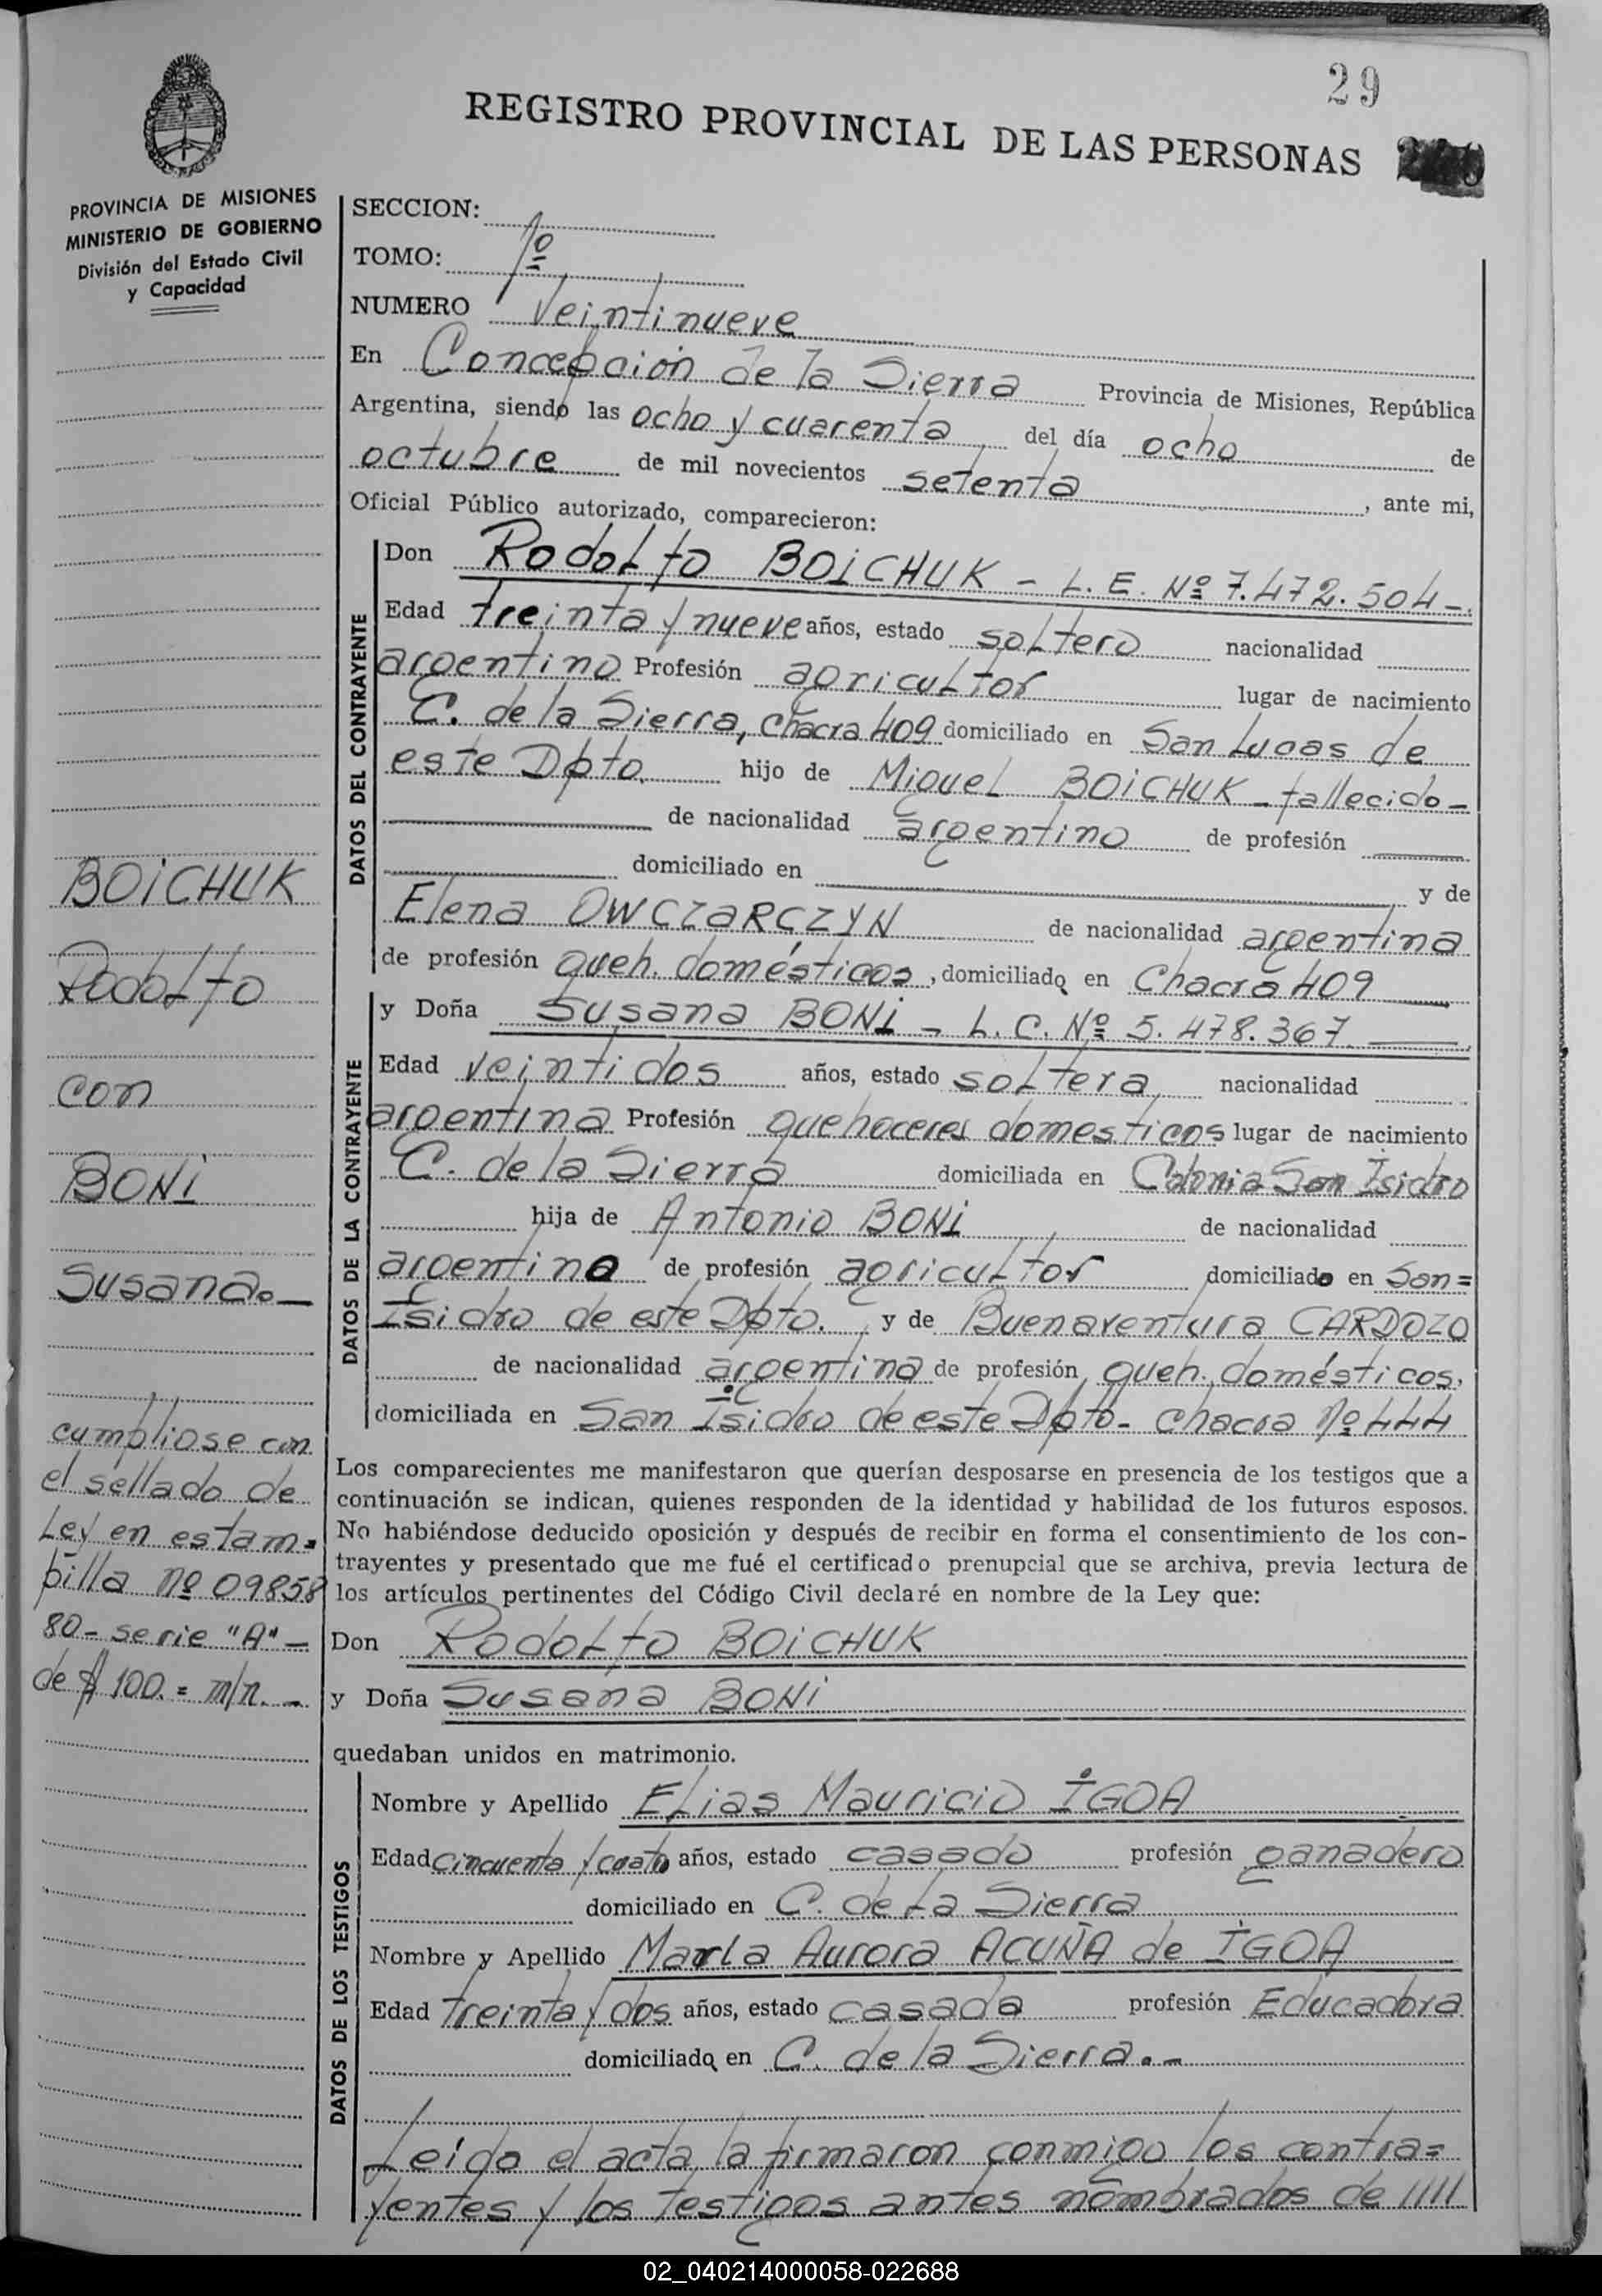 29
REGISTRO PROVINCIAL DE LAS PERSONAS
PROVINCIA DE MISIONES
MINISTERIO DE GOBIERNO
División del Estado Civil
y Capacidad
SECCION:
TOMO: 1º
NUMERO Veintinueve
En Concepción de la Sierra Provincia de Misiones, República
Argentina, siendo las ocho y cuarenta del día ocho de
octubre de mil novecientos setenta, ante mi,
Oficial Público autorizado, comparecieron:
DATOS DEL CONTRAYENTE
Don Rodolfo BOiCHUK - L. E. Nº 7.472.504-.
Edad treinta y nueve años, estado soltero nacionalidad
argentino Profesión agricultor lugar de nacimiento
C. de la Sierra, Chacra 409 domiciliado en San Lucas de
este Dpto. hijo de Miguel BOiCHUK - fallecido-
de nacionalidad argentino de profesión
domiciliado en y de
Elena OWCZARCZYN de nacionalidad argentina
de profesión queh. domésticos, domiciliado en Chacra 409
DATOS DE LA CONTRAYENTE
y Doña Susana BONi - L. C. Nº 5.478.367.
Edad veintidos años, estado soltera nacionalidad
argentina Profesión quehaceres domesticos lugar de nacimiento
C. de la Sierra domiciliada en Colonia San Isidro
hija de Antonio BONi de nacionalidad
argentino de profesión agricultor domiciliado en San=
Isidro de este Dpto. y de Buenaventura CARDOZO
de nacionalidad argentina de profesión queh. domésticos,
domiciliada en San Isidro de este Dpto- chacra Nº 444
Los comparecientes me manifestaron que querían desposarse en presencia de los testigos que a
continuación se indican, quienes responden de la identidad y habilidad de los futuros esposos.
No habiéndose deducido oposición y después de recibir en forma el consentimiento de los con-
trayentes y presentado que me fué el certificado prenupcial que se archiva, previa lectura de
los artículos pertinentes del Código Civil declaré en nombre de la Ley que:
Don Rodolfo BOiCHUK
y Doña Susana BONi
quedaban unidos en matrimonio.
DATOS DE LOS TESTIGOS
Nombre y Apellido Elias Mauricio IGOA
Edad cincuenta y cuatro años, estado casado profesión ganadero
domiciliado en C. de La Sierra
Nombre y Apellido Maria Aurora ACUÑA de IGOA
Edad treinta y dos años, estado casada profesión Educadora
domiciliada en C. de la Sierra.-
Leida el acta, la firmaron conmigo los contra=
yentes y los testigos antes nombrados de ////
BOiCHUK
Rodolfo
con
BONi
Susana.-
cumpliose con
el sellado de
Ley en estam=
pilla nº 09858
80- serie "A"-
de $ 100.= m/n.-
02_040214000058-022688